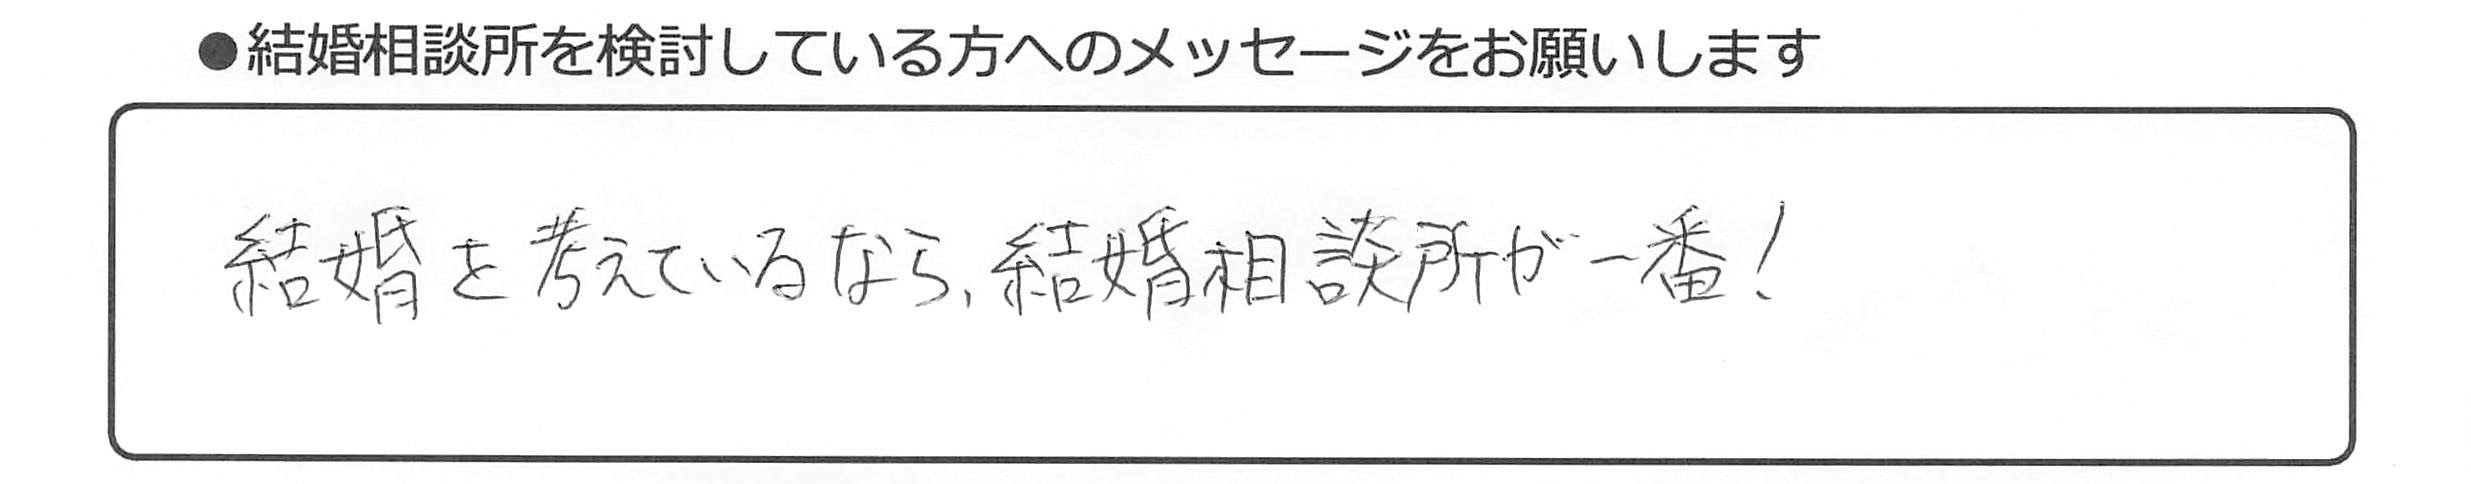 ●結婚相談所を検討している方へのメッセージをお願いします
結婚を考えているなら、結婚相談所が一番！